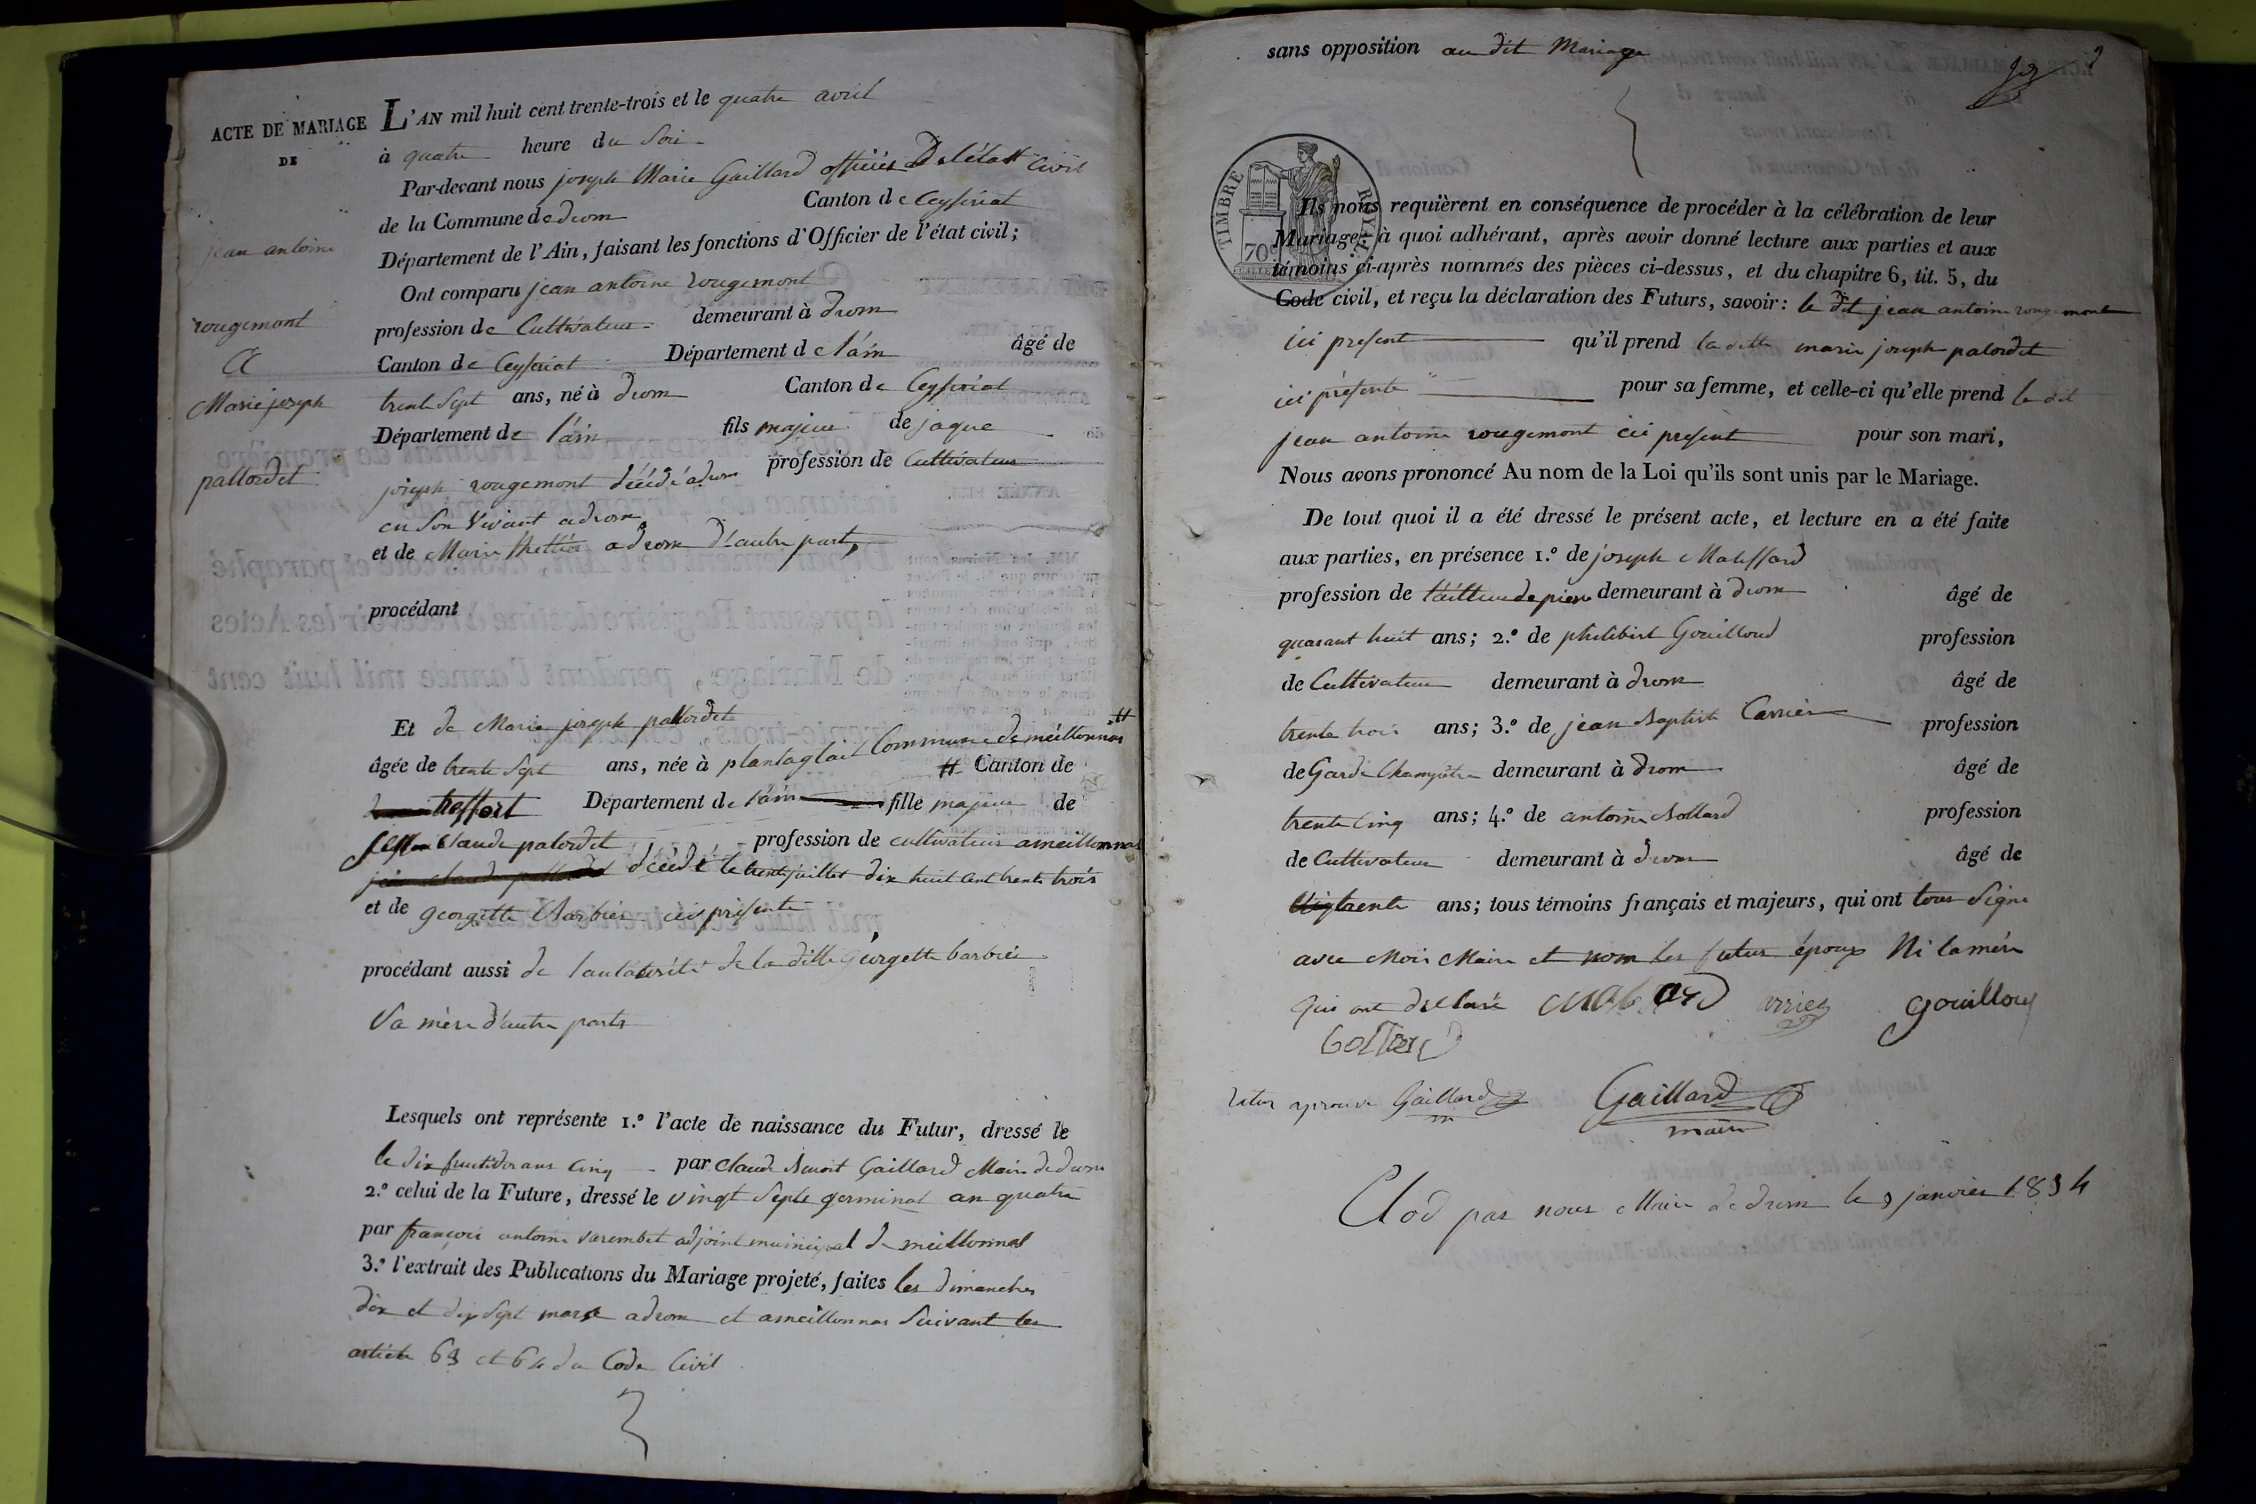 ACTE DE MARIAGE
DE
jean antoine
rougemont
Et
Marie joseph
pallordet
L'AN mil huit cent trente-trois et le quatre avril
à quatre heure du Soir
Par-devant nous joseph Marie Gaillard officier De l'état Civil
de la Commune de drom Canton de Ceyseriat
Département de l'Ain, faisant les fonctions d'Officier de l'état civil;
Ont comparu jean antoine rougemont
profession de Cultivateur demeurant à drom
Canton de Ceyseriat Département de l'ain âgé de
trente Sept ans, né à drom Canton de Ceyseriat
Département de l'ain fils majeur de jaque
joseph rougemont décédé a drom profession de Cultivateur
en Son Vivant a drom
et de Marie a drom D'autre part,
procédant
Et de Marie joseph pallordet
âgée de trente Sept ans, née à plantaglait Commune de meillonnas
Canton de
treffort Département de l'ain fille majeur de
Claude palordet profession de cultivateur a meillonnas
décédé le trente juillet dix huit cent trente trois
et de georgette Barbier ici présente
procédant aussi de l'autorité de la ditte Georgette barbier
Sa mère d'autre parts
Lesquels ont représente 1.º l'acte de naissance du Futur, dressé le
le dix fructidor ans Cinq par claude Benoit Gaillard Maire de drom
2.º celui de la Future, dressé le vingt Septe germinal an quatre
par françois antoine varembet adjoint municipal de meillonnas
3.º l'extrait des Publications du Mariage projeté, faites les dimanches
dix et dix Sept mars a drom et a meillonnas Suivant les
article 63 et 64 du Code Civil
sans opposition au dit Mariage
TIMBRE ROYAL
70c
Ils nous requièrent en conséquence de procéder à la célébration de leur
Mariage; à quoi adhérant, après avoir donné lecture aux parties et aux
témoins ci-après nommés des pièces ci-dessus, et du chapitre 6, tit. 5, du
Code civil, et reçu la déclaration des Futurs, savoir: le dit jean antoine rougemont
ici present qu'il prend la ditte marie joseph palordet
ici présente pour sa femme, et celle-ci qu'elle prend le dit
jean antoine rougemont ici présent pour son mari,
Nous avons prononcé Au nom de la Loi qu'ils sont unis par le Mariage.
De tout quoi il a été dressé le présent acte, et lecture en a été faite
aux parties, en présence 1.º de joseph
profession de tailleur de pierre demeurant à drom âgé de
quarant huit ans; 2.º de philibert Gouilloud profession
de Cultivateur demeurant à drom âgé de
trente trois ans; 3.º de jean Baptiste Carrier profession
de Garde Champêtre demeurant à drom âgé de
trente Cinq ans; 4.º de antoine Bollard profession
de Cultivateur demeurant à drom âgé de
trente ans; tous témoins français et majeurs, qui ont tous Signé
avec Moi Maire et non les futur époux Ni la mère
qui ont déclaré
Gouilloud
Gaillard
Gaillard
maire
Clos par nous Maire de drom le 3 janvier 1834